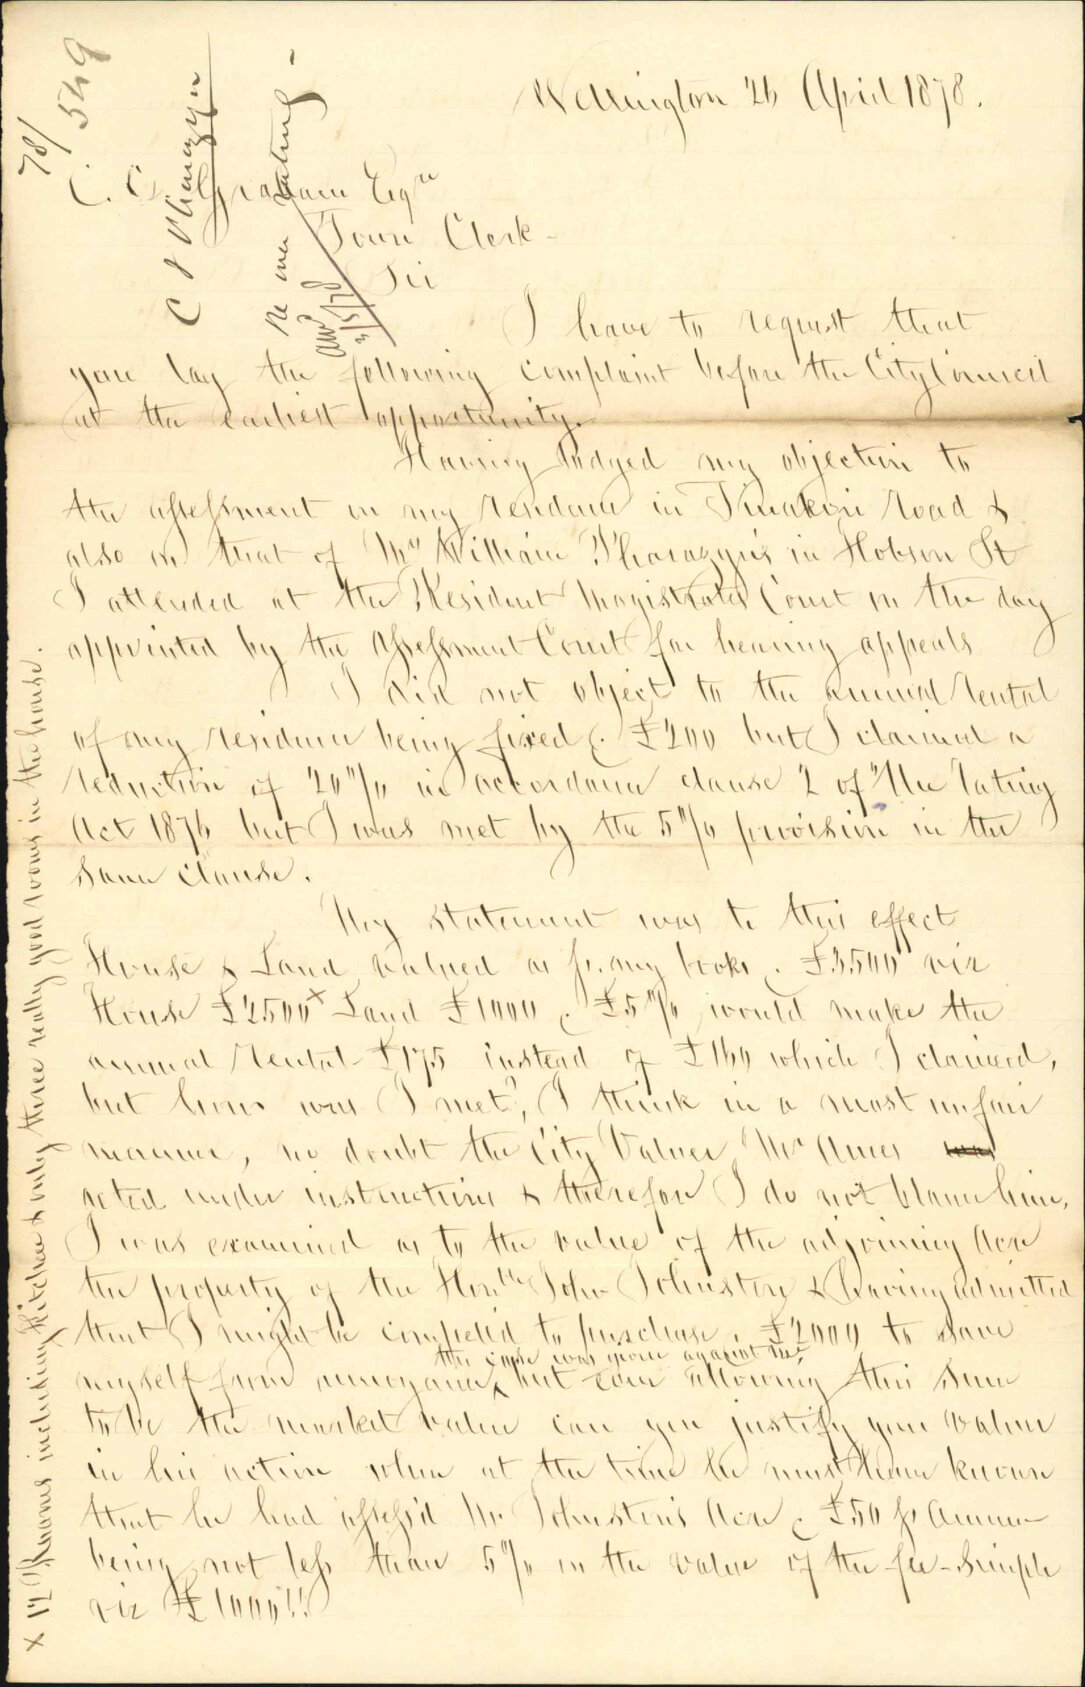 78/549
C J Pharazyn
re over rating
3/5/78
Wellington 26 April 1878.
C. C. Graham Esqre
Town Clerk -
Sir
I have to request that
you lay the following complaint before the City Council
at the earliest opportunity.
Having lodged my objection to
the assessment on my residence in Tinakori road &
also on that of Mr William Pharazyn's in Hobson St
I attended at the Resident Magistrates Court on the day
appointed by the Assessment Court for hearing appeals
I did not object to the annual rental
of my residence being fixed @ £200 but I claimed a
reduction of 20 % in accordance clause 2 of "The rating
Act 1876 but I was met by the 5 % provision in the
same clause.
My statement was to this effect
House & Land valued as pr. my books @ £3500 viz
House £2500 x Land £1000 @ £5 % would make the
annual rental £175 instead of £160 which I claimed,
but how was I met?, I think in a most unfair
manner, no doubt the City Valuer Mr Ames
acted under instructions & therefore I do not blame him,
I was examined as to the value of the adjoining Acre
the property of the Honble John Johnston & having admitted
that I might be compelled to purchase @ £2000 to save
myself from annoyance, the case was given against me, but even allowing this sum
to be the market value can you justify your valuer
in his action when at the time he must have known
that he had assess'd Mr Johnston's Acre @ £50 pr Annum
being not less than 5 % on the value of the fee-simple
viz £1000!!
x 12 Rooms including Kitchen & only three really good rooms in the house.